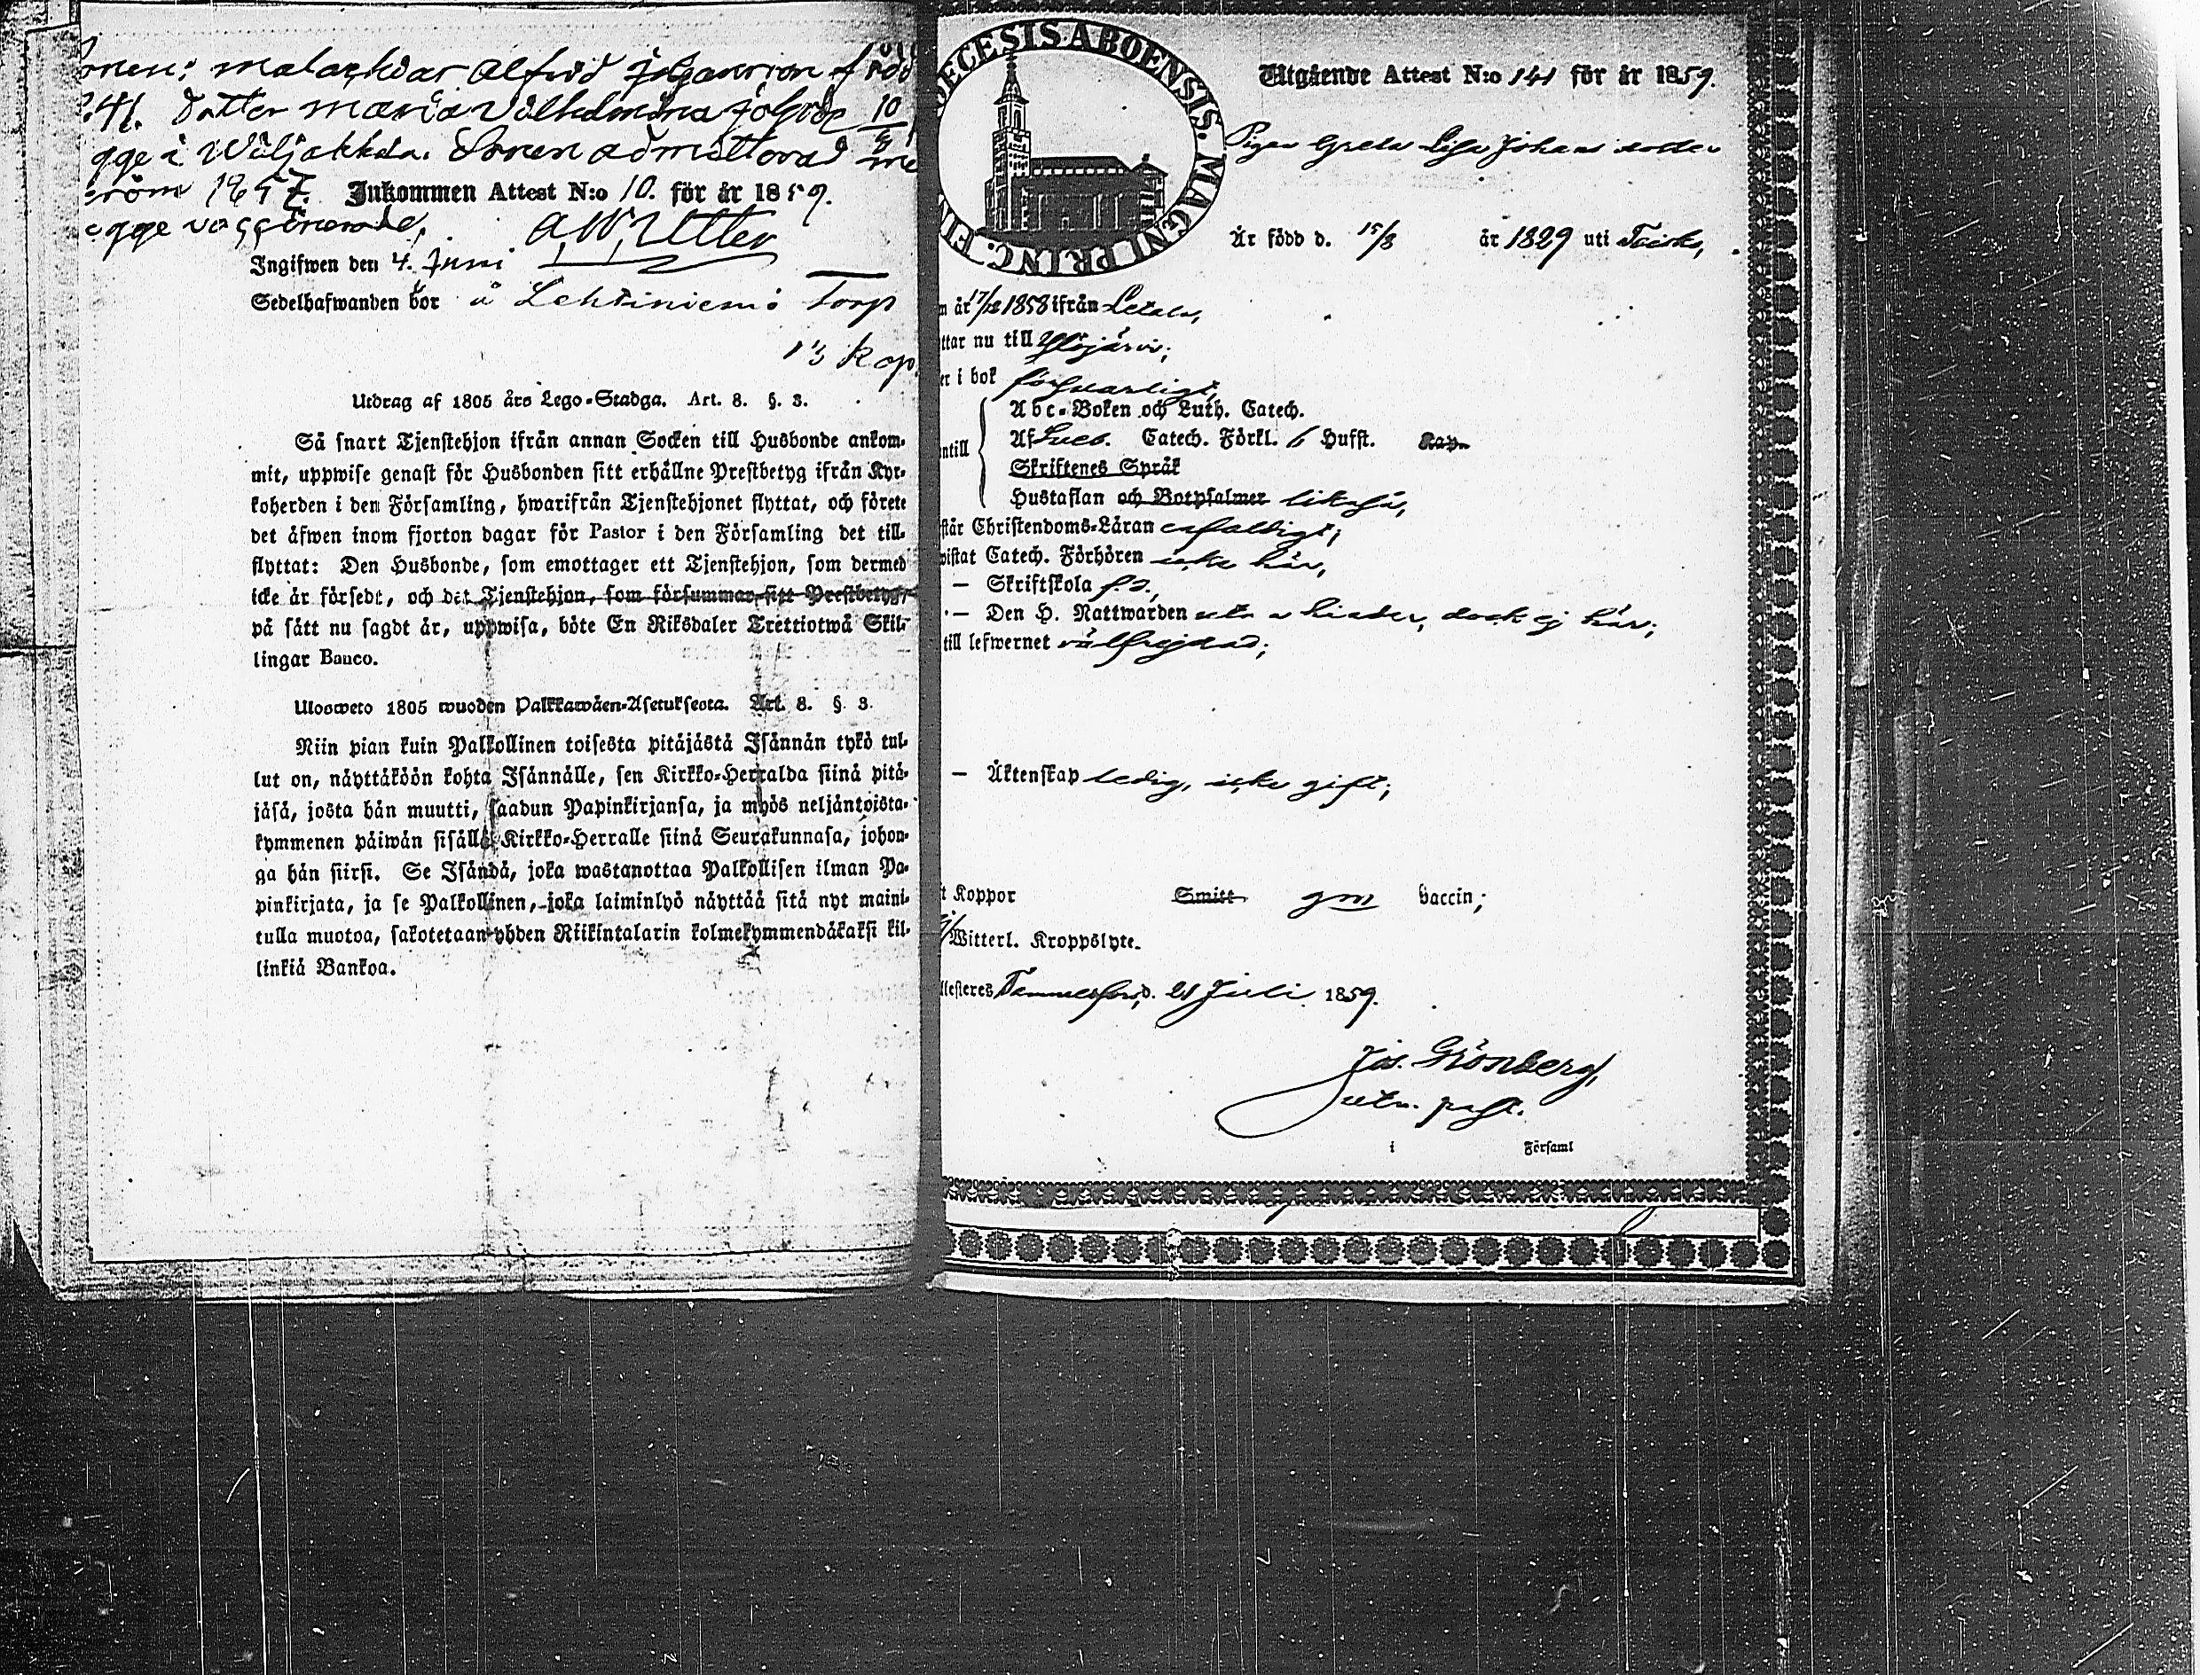 Alfred
Dotter Maria
Sonen
Inkommen Attest N:o 10. för år 1859.
Ingifwen den 4. Juni
Sedelhafwanden bor å Lehtiniemi Torp
kop.
Utdrag af 1805 års Lego-Stadga. Art. 8. §. 3.
Så snart Tjenstehjon ifrån annan Socken till Husbonde ankom-
mit, uppwise genast för Husbonden sitt erhållne Prestbetyg ifrån Kyr-
koherden i den Församling, hwarifrån Tjenstehjonet flyttat, och förete
det åfwen inom fjorton dagar för Pastor i den Församling det till-
flyttat: Den Husbonde, som emottager ett Tjenstehjon, som dermed
icke är försedt, och det Tjenstehjon, som försummar sitt Prestbetyg,
på sätt nu sagdt är, uppwisa, böte En Riksdaler Trettiotwå Skil-
lingar Banco.
Ulosweto 1805 wuoden Palkkawäen-Asetuksesta. Art. 8. §. 3.
Niin pian kuin Palkollinen toisesta pitäjästä Isännän tykö tul-
lut on, näyttäköön kohta Isännälle, sen Kirkko-Herralda siinä pitä-
jäsä, josta hän muutti, saadun Papinkirjansa, ja myös neljäntoista-
kymmenen päiwän sisällä Kirkko-Herralle siinä Seurakunnasa, johon-
ga hän siirsi. Se Isändä, joka wastanottaa Palkollisen ilman Pa-
pinkirjata, ja se Palkollinen, joka laiminlyö näyttää sitä nyt maini-
tulla muotoa, sakotetaan yhden Riikintalarin kolmekymmendäkaksi kil-
linkiä Bankoa.
DECESIS ABOENSIS. MAGNI PRINC. FIN
Utgående Attest N:o 141 för år 1859.
Pigan Greta Lisa Johans dotter
Är född d. 15/8 år 1829 uti
år 17/12 1858 ifrån Letala,
ttar nu till Ylöjärvi;
er i bok försvarligt,
Abc-Boken och Luth. Catech.
ntill Af Luth. Catech. Förkl. 6 Hufst. Kap.
Skriftenes Språk
Hustaflan och Botpsalmer likaså,
står Christendoms-Läran enfaldigt;
wistat Catech. Förhören icke här,
— Skriftskola
— Den H. Nattwarden utan hinder, dock ej här;
till lefwernet välfrejdad;
— Äktenskap ledig, icke gift;
t Koppor Smitt gm vaccin;
Witterl. Kroppslyte.
llesteres Tammerfors, d. 21 Juli 1859.
Jos. Grönberg,
i Församl